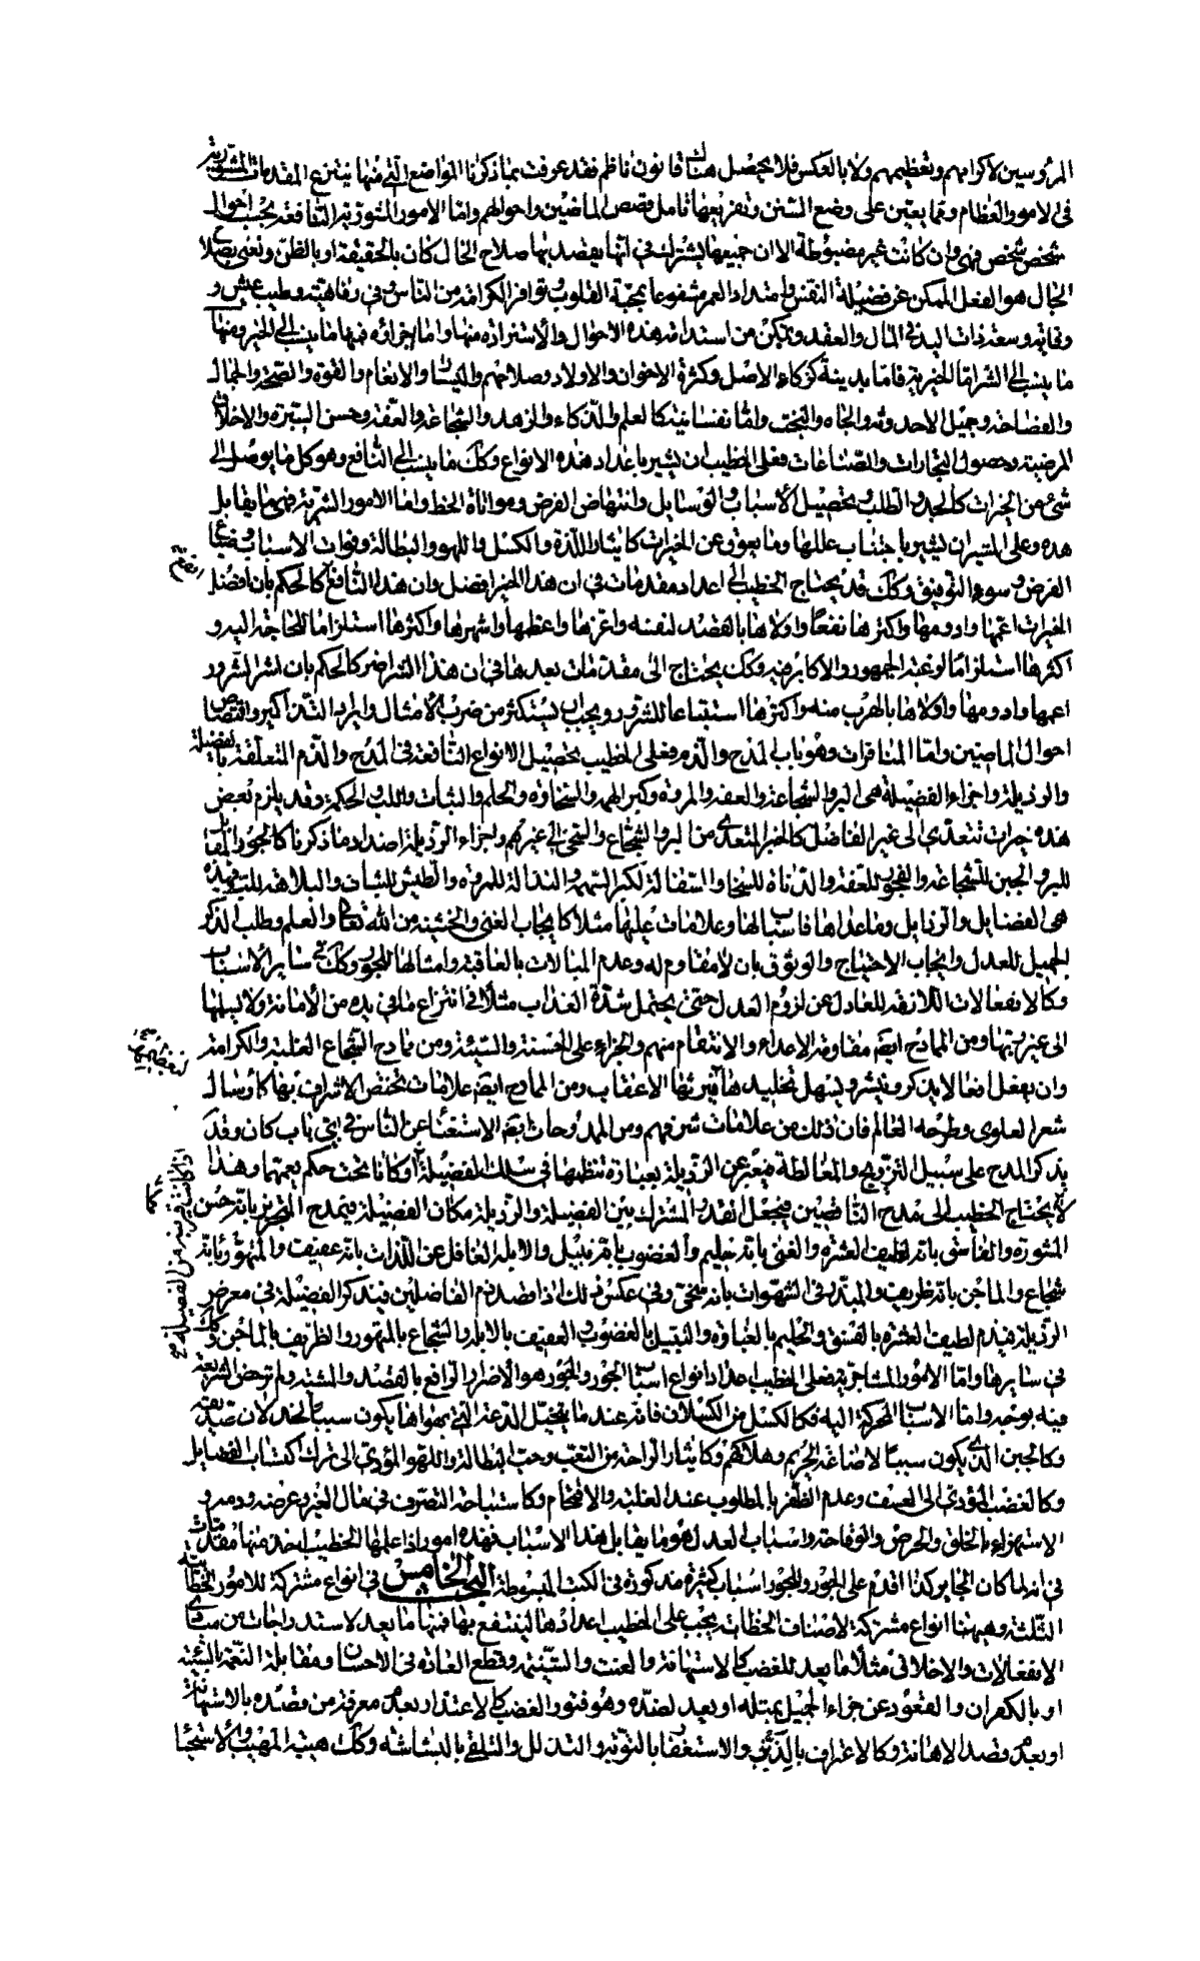 المرؤسين لاكرامهم وتعظيمهم ولا بالعكس فلا يحصل هناك قانون ناظم فقد عرفت بما ذكرنا المواضع التي منها ينتزع المقدمات المشورية
في الامور العظام ومما يعين على وضع السنن وتفريعها تامل قصص الماضين واحوالهم واما الامور المشورية النافعة بحسب احوال
شخص شخص فهي وان كانت غير مضبوطة الا ان جميعها يشترك في انها يقصد بها صلاح الحال كان بالحقيقة او بالظن ونعني بصلاح
الحال هو الفعل الممكن عن فضيلة النفس وامتداد العمر مشفوعا بمحبة القلوب وتوافر الكرامة من الناس وفي رفاهية وطيب عيش و
وقاية وسعة ذات اليد في المال والعقد وتمكن من استدامة هذه الاحوال والاستزادة منها واما اجزاؤه فمنها ما ينسب الى الخير ومنها
ما ينسب الى الشر اما الخيرية فاما بدينة كزكاء الاصل وكثرة الاخوان والاولاد وصلاحهم والبنات والانعام والقوة والصحة والجمال
والفصاحة وجميل الاحدوثة والجاه والبخت واما نفسانية كالعلم والذكاء والزهد والشجاعة والعفة وحسن السيرة والاخلاق
المرضية وحصول التجارات والصناعات فعلى الخطيب ان يشير باعداد هذه الانواع وكك ما ينسب الى النافع وهو كل ما يوصل الى
شيء من الخيرات كالجد والطلب وتحصيل الأسباب والوسايل وانتهاض الفرص ومواتاة الحظ واما الامور الشرية فهي ما يقابل
هذه وعلى المشير ان يشير باجتناب عللها وما يعوق عن الخيرات كايثار اللذة والكسل واللهو والبطالة وفوات الاسباب وضياع
الفرص وسوء التوفيق وكك قد يحتاج الخطيب الى اعداد مقدمات في ان هذا الخير افضل وان هذا النافع كالحكم بان افضل
الخيرات اعمها وادومها واكثرها نفعا واولاها بالقصد لنفسه واعزها واعظمها واشهرها واكثرها استلزاما للحاجة اليه و
اكثرها استلزاما لرغبة الجمهور والاكابر فيه وكك يحتاج الى مقدمات يعدها في ان هذا الشر اضر كالحكم بان اشر الشرور
اعمها وادومها واولاها بالهرب منه واكثرها استتباعا للشرور ويجب ان يستكثر من ضرب الأمثال وايراد التذاكير واقتصاص
احوال الماضين واما المنافرات وهو باب المدح والذم فعلى الخطيب تحصيل الانواع النافعة في المدح والذم المتعلقة بالفضيلة
والرذيلة واجزاء الفضيلة هي البر والشجاعة والعفة والمروة وكبر الهمة والسخاوة والحلم والثبات واللب والحكمة وقد يلزم بعض
هذه خيرات تتعدى الى غير الفاضل كالخير المتعدى من البر والشجاع والسخي الى غيرهم واجزاء الرذيلة اضداد ما ذكرنا كالجور المقابل
للبر والجبن للشجاعة والفجور للعفة والدناءة للسخاء والسفالة لكبر الهمة والنذالة للمروة والطيش للثبات والبلاهة للب فهذه
هي الفضايل والرذايل وما عداها فاسباب لها وعلامات عليها مثلا كايجاب الغنى والخشية من الله تعالى والعلم وطلب الذكر
الجميل للعدل وايجاب الاحتياج والوثوق بان لا مقاوم له وعدم المبالات بالعاقبة وامثالها للجور وكك في ساير الأسباب
وكالانفعالات اللازمة للعادل عن لزوم العدل حتى يحتمل شدة العذاب مثلا في انتزاع ما في يده من الأمانة ولا يسلمها
الى غير ربها ومن الممادح ايضا مقاومة الاعداء والانتقام منهم والجزاء على الحسنة والسيئة ومن ممادح الشجاع الغلبة والكرامة
وان يفعل افعالا يذكر وينشر ويسهل تخليد مآثرها في الاعقاب ومن الممادح ايضا علامات تختص الاشراف بها كارسال
شعر العلوى وطرحه العالم فان ذلك من علامات شرفهم ومن الممدوحات ايضا الاستغناء عن الناس في اي باب كان وقد
يذكر المدح على سبيل الترويج والمغالطة فيعبر عن الرذيلة بعبارة تنظمها في سلك الفضيلة او كانا تحت حكم يعمهما وهذا
لا يحتاج الخطيب الى مدح الناقصين فيجعل القدر المشترك بين الفضيلة والرذيلة مكان الفضيلة فيمدح الجربز بانه حسن
المشورة والفاسق بانه لطيف العشرة والغنى بانه حليم والغضوب بانه نبيل والابله الغافل عن اللذات بانه عفيف والمتهور بانه
شجاع والماجن بانه ظريف والمبذر في الشهوات بانه سخي وفي عكس ذلك اذا قصد ذم الفاضلين فيذكر الفضيلة في معرض
الرذيلة فيذم لطيف العشرة بالفسق والحليم بالغباوة والنبيل بالغضوب والعفيف بالابله والشجاع بالمتهور والظريف بالماجن وكك
في سايرها واما الامور المشاجرية فعلى الخطيب اعداد انواع اسباب الجور والجور هو الاضرار الواقع بالقصد والمشية ولم ترخص الشريعة
فيه بوجه واما الاسباب المحركة اليه فكالكسل من الكسلان فانه عند ما يتخيل الدعة التي يهواها يكون سببا لخذلان صديقه
وكالجبن الذي يكون سببا لاضاعة الحريم وهلاكهم وكايثار الراحة من التعب وحب البطالة واللهو المؤدى الى ترك اكتساب الفضايل
وكالغضب المؤدى الى العنف وعدم الظفر بالمطلوب عند الغلبة والاقتحام وكاستباحة التصرف في مال الغير وعرضه ودمه و
الاستهزاء بالخلق والحرص والوقاحة واسباب العدل هو ما يقابل هذا الاسباب فهذه امور اذا علمها الخطيب اخذ منها مقدمات
في انه لما كان الجاير كذا اقدم على الجور وللجور اسباب كثيرة مذكورة في الكتب المبسوطة البحث الخامس في انواع مشتركة للامور الخطابية
الثلثة وهيهنا انواع مشتركة لاصناف الخطابة يجب على الخطيب اعدادها لينتفع بها فمنها ما يعد لاستدراجات من مبادى
الانفعالات والاخلاق مثلا ما يعد للغضب كالاستهانة والعنت والشتيمة وقطع العادة في الاحسان ومقابلة النعمة بالسيئة
او بالكفران والقعود عن جزاء الجميل بمثله او يعد لضده وهو فتور الغضب كالاعتذار بعدم معرفة من قصده بالاستهانة
او بعدم قصد الاهانة وكالاعتراف بالذنب والاستغفار بالتوبة والتذلل والتلقى بالبشاشة وكك هيبة المهيب والاستحياء